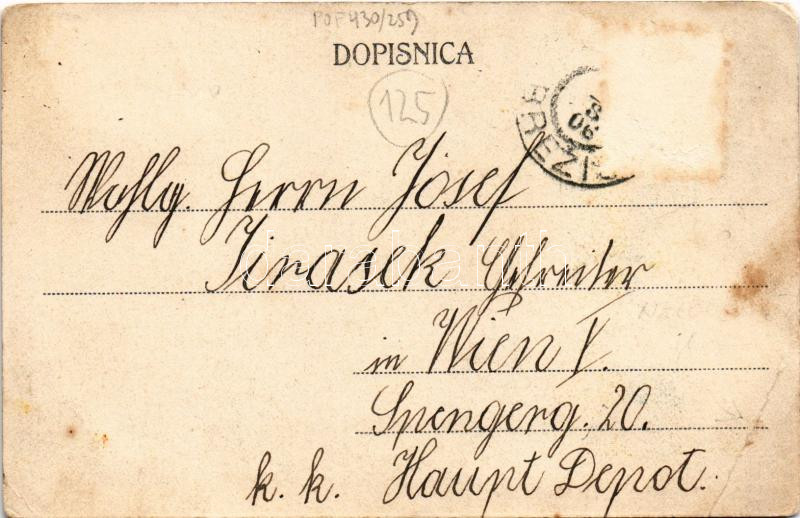 POF430/259
DOPISNICA
125
8
06
BREZI
Wohlg. Herrn Josef
Jirasek Gefreiter
in Wien V.
Spengerg. 20.
k. k. Haupt Depot.